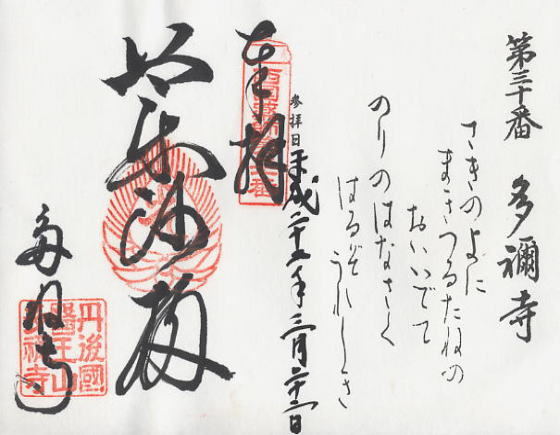 第三十番 多禰寺
さきのよに
まきつるたねの
おいいでて
のりのはなさく
はるぞうれしき
参拝日 平成二十五年三月二十二日
奉拝
多祢寺
丹後國
醫王山
多祢寺